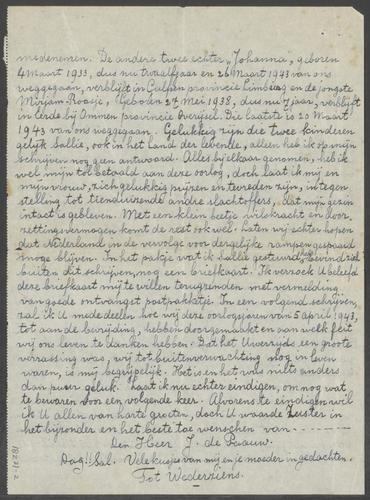 medenemen. De andere twee echter, Johanna, geboren
4 Maart 1933, dus nu twaalf jaar en 26 Maart 1943 van ons
weggegaan, verblijft in Gulpen provincie Limburg en de jongste
Mirjam-Roosje, Geboren 27 Mei 1938, dus nu 7 jaar, verblijft
in Lerde bij Ommen provincie Overijsel. Die laatste is 20 Maart
1943 van ons weggegaan. Gelukkig zijn die twee kinderen
gelijk Sallie, ook in het land der levenden, alleen heb ik op mijn
schrijven nog geen antwoord. Alles bij elkaar genomen, heb ik
wel mijn tol betaald aan deze oorlog, doch laat ik mij en
mijn vrouw, zich gelukkig prijzen en tevreden zijn, in tegen
stelling tot tienduizende andre slachtoffers, dat mijn gezin
intact is gebleven. Met een klein beetje wilskracht en door
zettingsvermogen komt de rest ook wel. Laten wij echter hopen
dat Nederland in de vervolge voor dergelijke rampen gespaard
moge blijven. In het pakje wat ik Sallie gestuurd heb, bevind zich
buiten dit schrijven, nog een briefkaart. Ik verzoek U beleefd
deze briefkaart mij te willen terugzenden met vermelding
van goede ontvangst postpakketje. In een volgend schrijven,
zal ik U mededeelen hoe wij deze oorlogsjaren van 5 april 1943,
tot aan de bevrijding, hebben doorgemaakt en aan welk feit
wij ons leven te danken hebben. Dat het Uwerzijds een groote
verrassing was, wij tot buitenverwachting nog in leven
waren, is mij begrijpelijk. Het is en het was niets anders
dan puur geluk. Laat ik nu echter eindigen, om nog wat
te bewaren voor een volgende keer. Alvorens te eindigen wil
ik U allen van harte groeten, doch U waarde Zuster in
het bijzonder en het beste toe wenschen van
Den Heer J. de Paauw.
Dag!! Sal. Vele kusjes van mij en je moeder in gedachten.
Tot Wederziens.